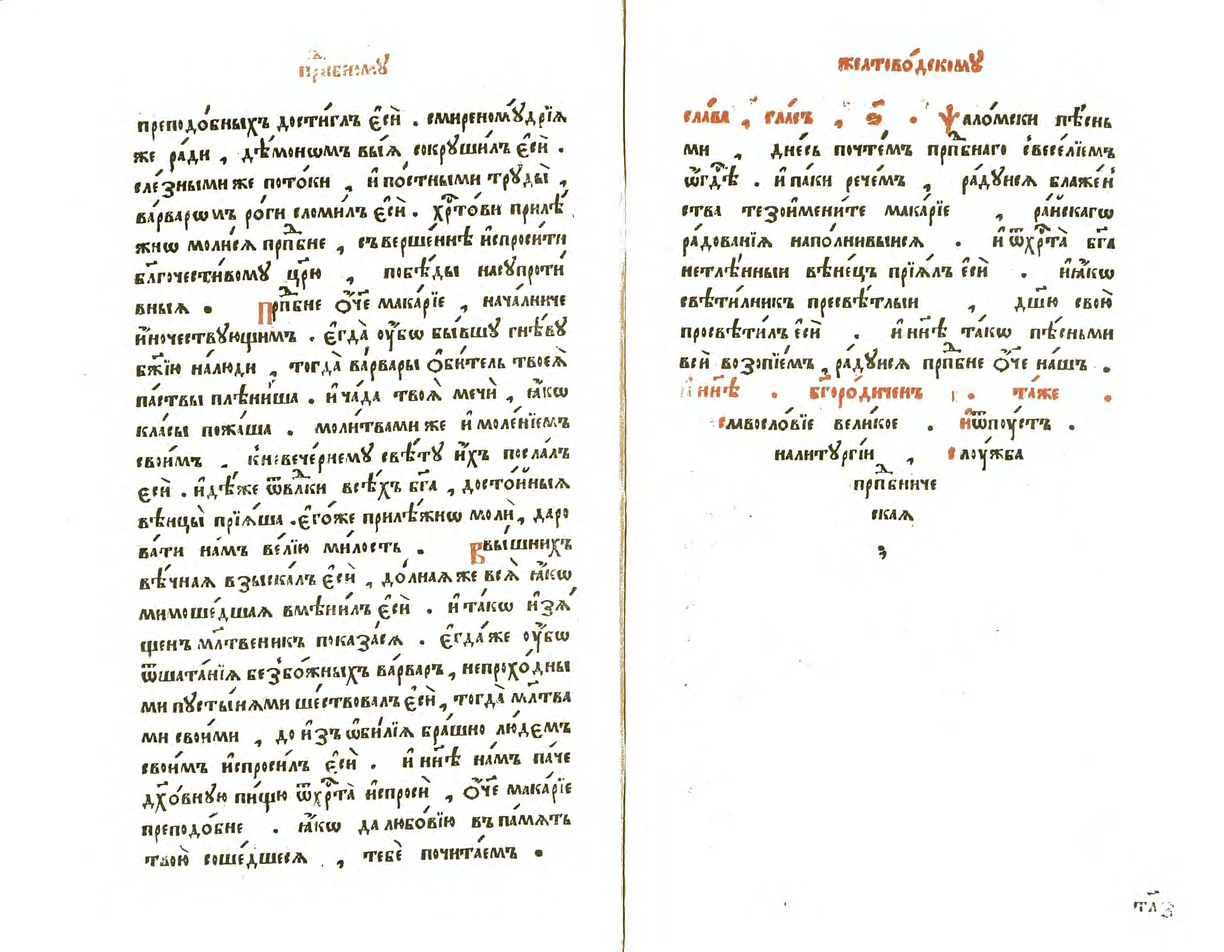 прⷣпбномꙋ
преподо́бныхъ дости́глъ є҆сѝ . смиреномꙋ́дрїѧ
же ра́ди , де́мономъ вы́ѧ сокрꙋши́лъ є҆сѝ .
сле́зными же пото́ки , и҆ по́стными трꙋды̀ ,
ва́рварѡмъ ро́ги сломи́лъ є҆сѝ . хрⷭ҇то́ви прилѣ́
жнѡ моли́сѧ прⷣпбне , съверше́ннѣ и҆спроси́ти
бл҃гочести́вомꙋ цр҃ю́ , побѣ́ды насꙋпроти́
вныѧ . Прⷣпбне ѻ҆́ч҃е мака́рїе , нача́лниче
и҆́ночествꙋющимъ . є҆гда̀ ᲂу҆́бѡ бы́вшꙋ гнѣ́вꙋ
бж҃їю на́люди , тогда̀ ва́рвары ѻ҆би́тель твоеѧ̀
па́ствы плѣни́ша . и҆ ча́да твоѧ̀ мечѝ , ꙗ҆́кѡ
кла́сы пожа́ша . моли́твами же и҆ моле́нїемъ
свои́мъ , кневече́рнемꙋ свѣ́тꙋ и҆̀хъ посла́лъ
є҆сѝ . и҆дѣ́же ѿвл҃ки всѣ́хъ бг҃а , досто́йныѧ
вѣнцы̀ прїѧ́ша . є҆го́же прилѣ́жнѡ молѝ, даро
ва́ти на́мъ ве́лїю ми́лость . Ввы́шнихъ
вѣ́чнаѧ взыска́лъ є҆сѝ , до́лнаѧ же всѧ̀ ꙗ҆́кѡ
мимоше́дшаѧ вмѣни́лъ є҆сѝ . и҆ та́кѡ и҆зѧ́
щенъ мл҃твеникъ показа́сѧ . є҆гда́ же ᲂу҆́бѡ
ѿшата́нїѧ безбо́жныхъ ва́рваръ , непроходны
ми пꙋсты́нѧми ше́ствовалъ є҆сѝ , тогда̀ мл҃тва
ми свои́ми , до и҆зъѡби́лїѧ бра́шно лю́демъ
свои́мъ и҆спроси́лъ є҆сѝ . и҆ нн҃ѣ на́мъ па́че
дх҃о́внꙋю пи́щꙋ ѿхрⷭ҇та̀ и҆спросѝ , ѻ҆́ч҃е мака́рїе
преподо́бне . ꙗ҆́кѡ да любо́вїю въ па́мѧть
твою̀ соше́дшесѧ , тебѐ почита́емъ .
желтово́дскомꙋ
сла́ва , гла́съ , ѕ҃ . Ѱало́мски пѣ́снь
ми , дне́сь почте́мъ прⷣпбнаго свесе́лїемъ
ѡ҆гдѣ̀ . и҆ паки рече́мъ , ра́дꙋисѧ блаже́н
ства тезоимени́те мака́рїе , ра́йскагѡ
ра́дованїѧ напо́лнивыисѧ . и҆ ѿхрⷭ҇та̀ бг҃а
нетлѣ́нныи вѣне́цъ прїѧ́лъ є҆сѝ . и҆ ꙗ҆́кѡ
свѣти́лникъ пресвѣ́тлыи , дш҃ю свою̀
просвѣти́лъ є҆сѝ . и҆ нн҃ѣ та́кѡ пѣ́сньми
всѝ возопїе́мъ , ра́дꙋисѧ прⷣпбне ѻ҆́ч҃е на́шъ .
И҆ нн҃ѣ . бг҃оро́диченъ . та́же .
славосло́вїе вели́кое . и҆ѿпꙋ́стъ .
налитꙋргі́и , слꙋ́жба
прⷣпбниче
скаѧ
тл҃з